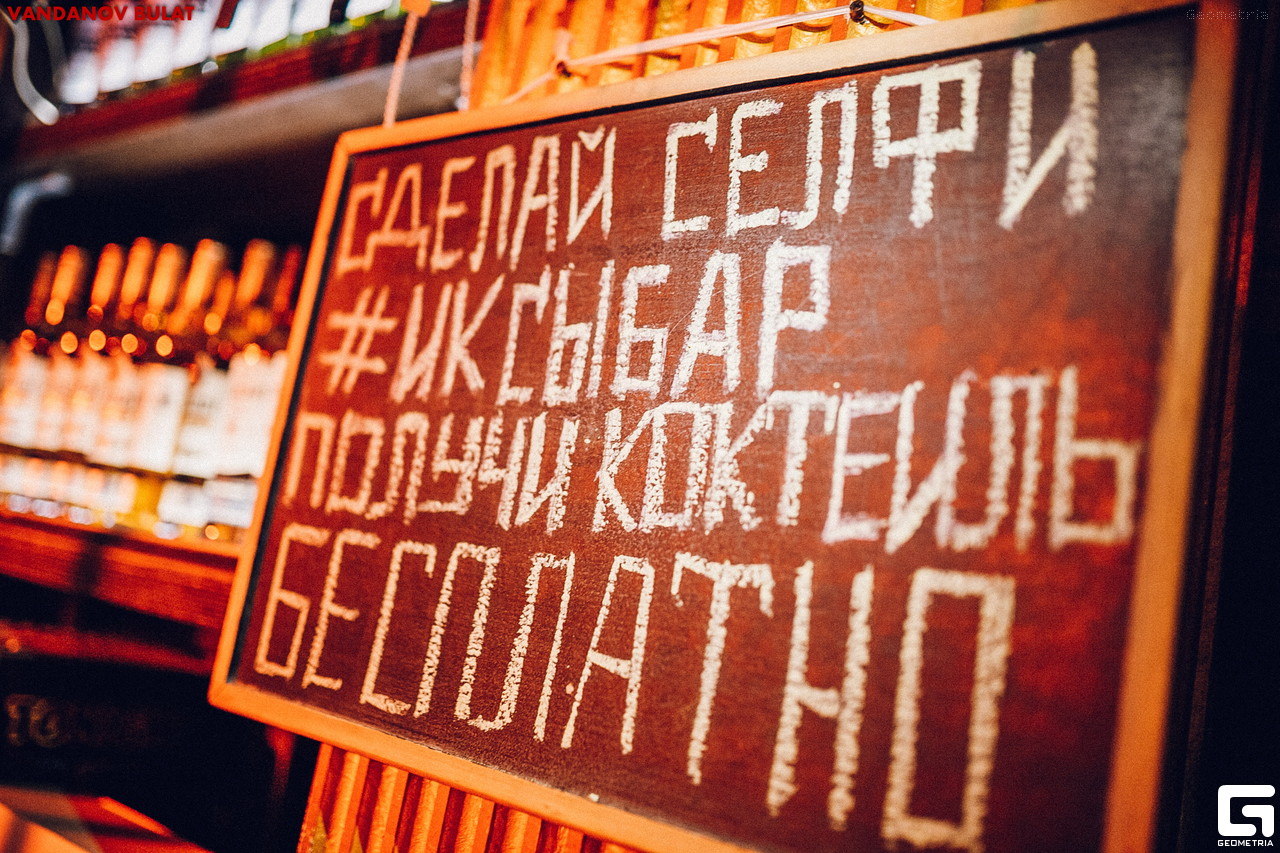 VANDANOV BULAT
Geometria
СДЕЛАЙ СЕЛФИ
#ИКСЫБАР
ПОЛУЧИ КОКТЕИЛЬ
БЕСПЛАТНО
GEOMETRIA